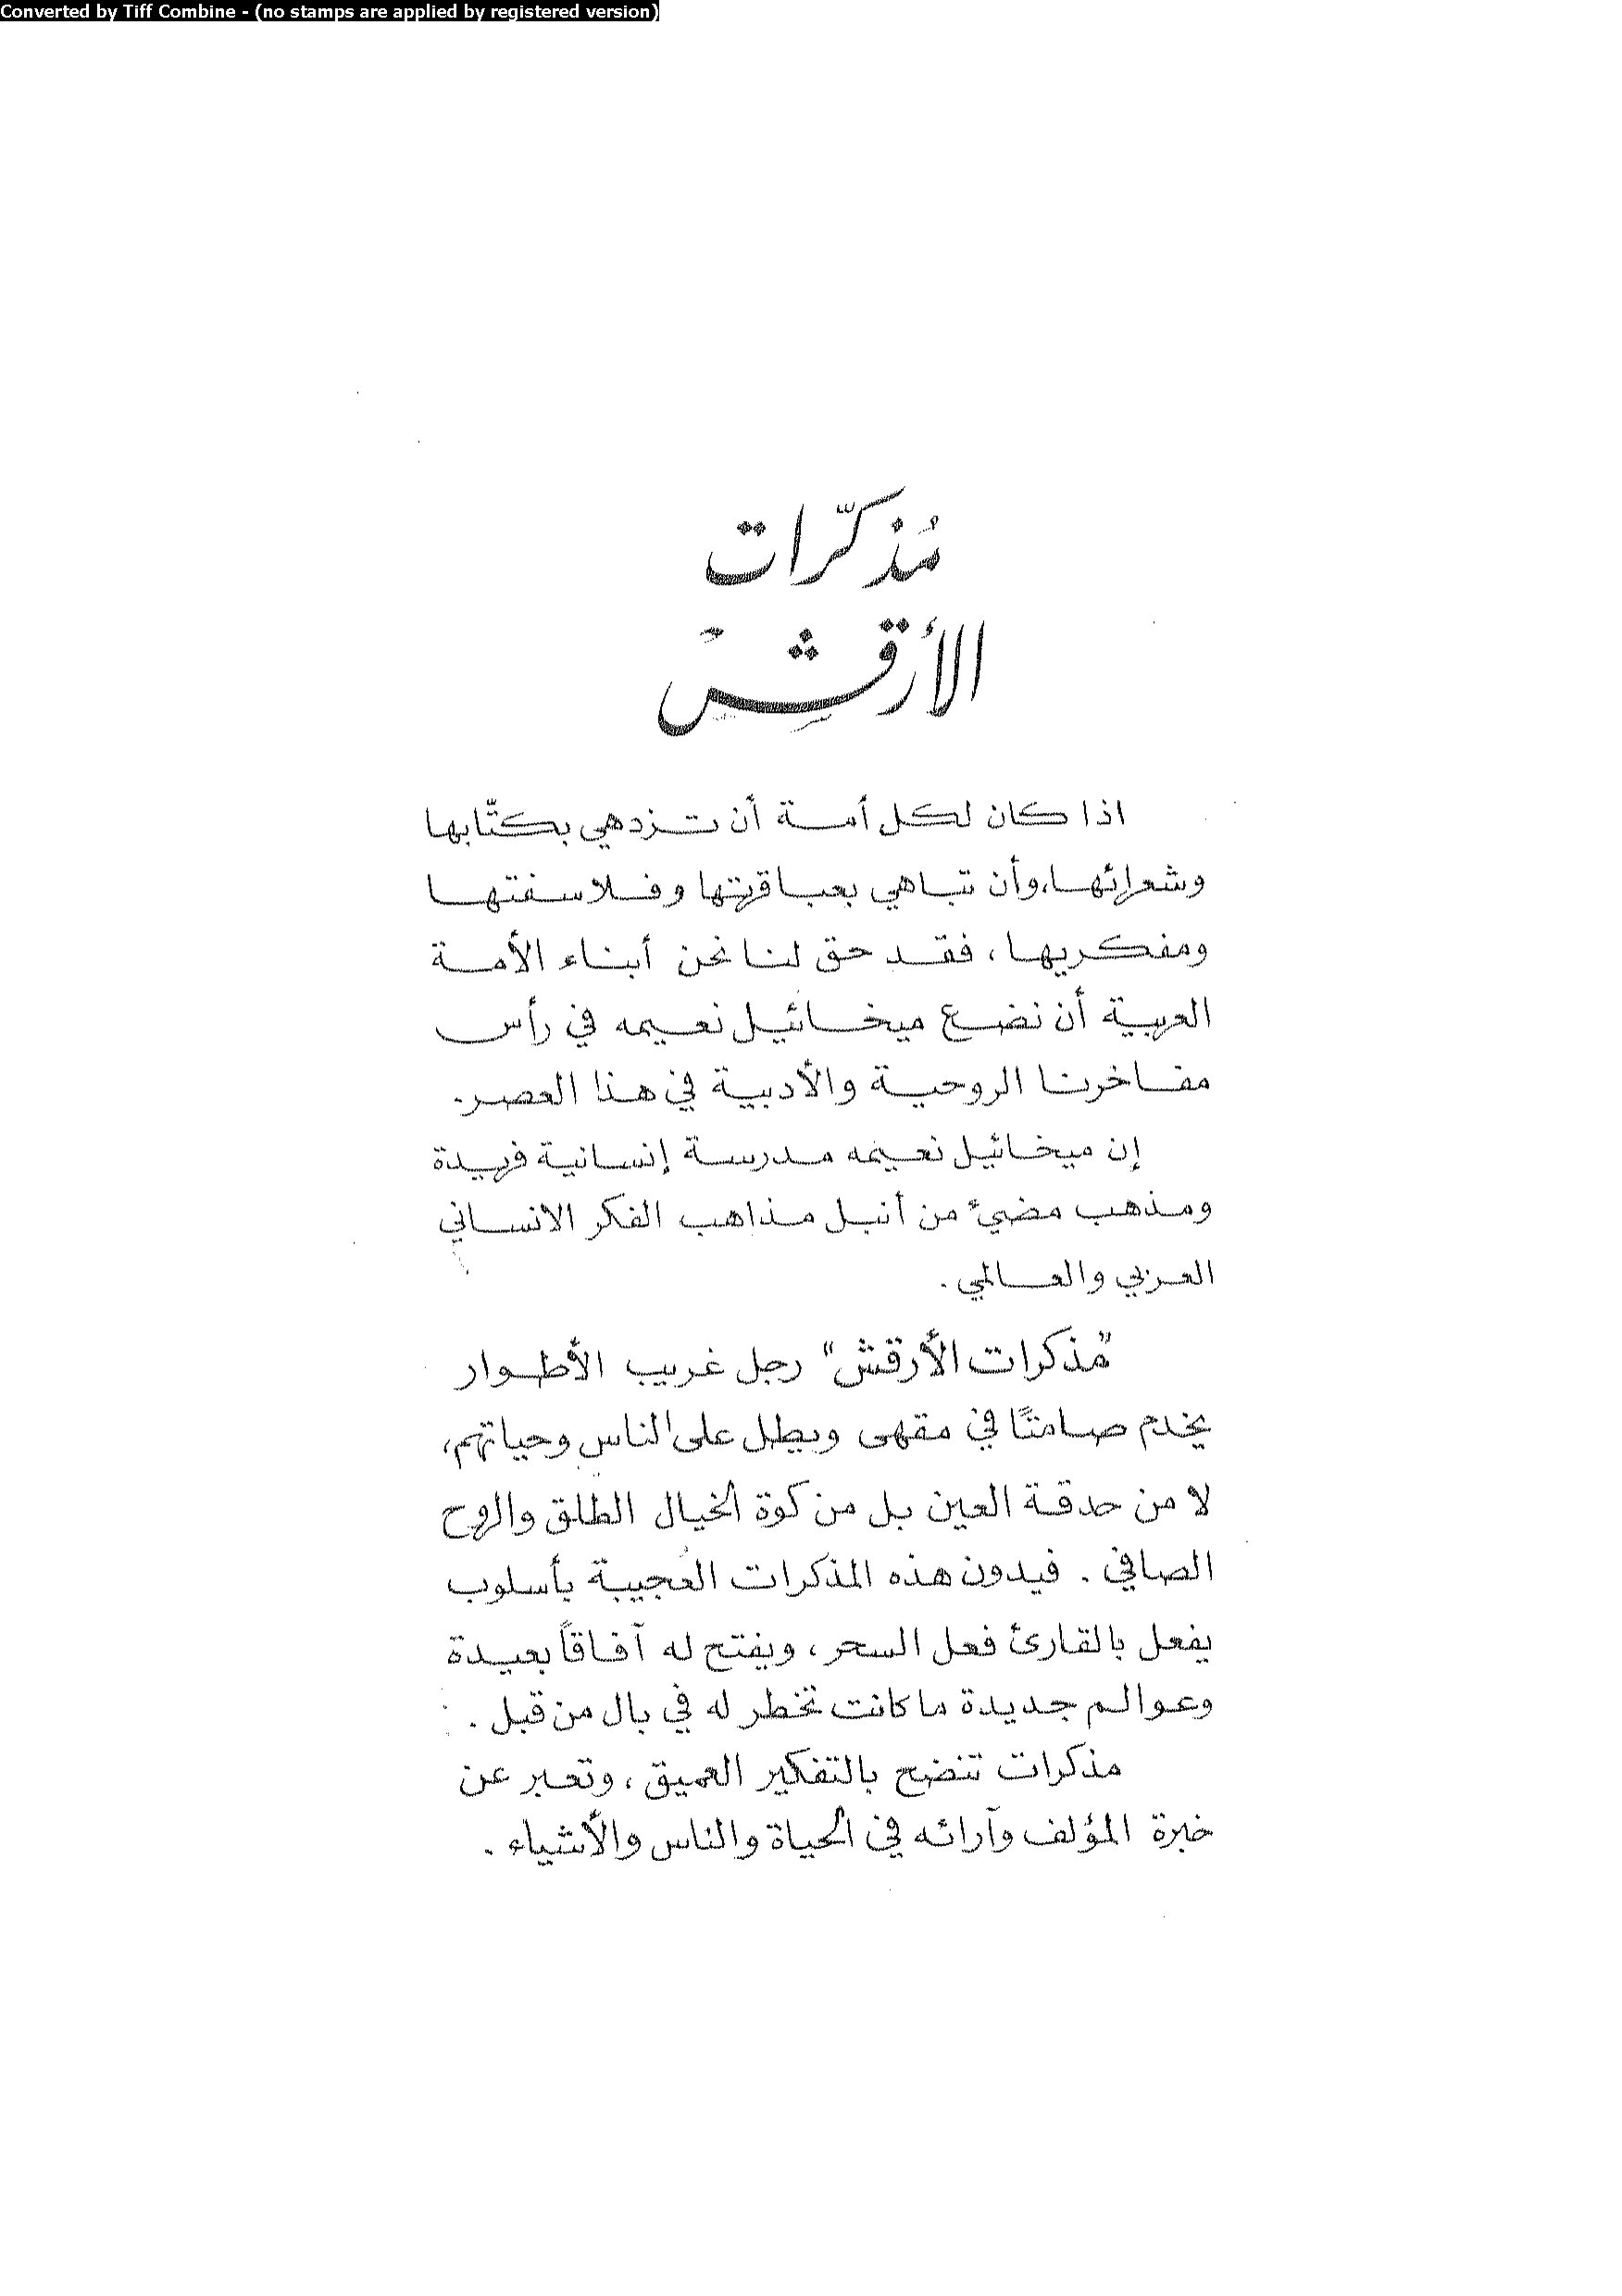 Converted by Tiff Combine - (no stamps are applied by registered version)
مُذكّرات
الأرقش
اذا كان لكل أمة أن تزدهي بكتّابها
وشعرائها، وأن تباهي بعباقرتها وفلاسفتها
ومفكريها، فقد حق لنا نحن أبناء الأمة
العربية أن نضع ميخائيل نعيمه في رأس
مفاخرنا الروحية والأدبية في هذا العصر.
إن ميخائيل نعيمه مدرسة إنسانية فريدة
ومذهب مضيء من أنبل مذاهب الفكر الانساني
العربي والعالمي.
"مذكرات الأرقش" رجل غريب الأطوار
يخدم صامتًا في مقهى ويطل على الناس وحياتهم،
لا من حدقة العين بل من كوة الخيال الطلق والروح
الصافي. فيدون هذه المذكرات العجيبة بأسلوب
يفعل بالقارئ فعل السحر، ويفتح له آفاقاً بعيدة
وعوالم جديدة ما كانت تخطر له في بال من قبل.
مذكرات تنضح بالتفكير العميق، وتعبر عن
خبرة المؤلف وآرائه في الحياة والناس والأشياء.